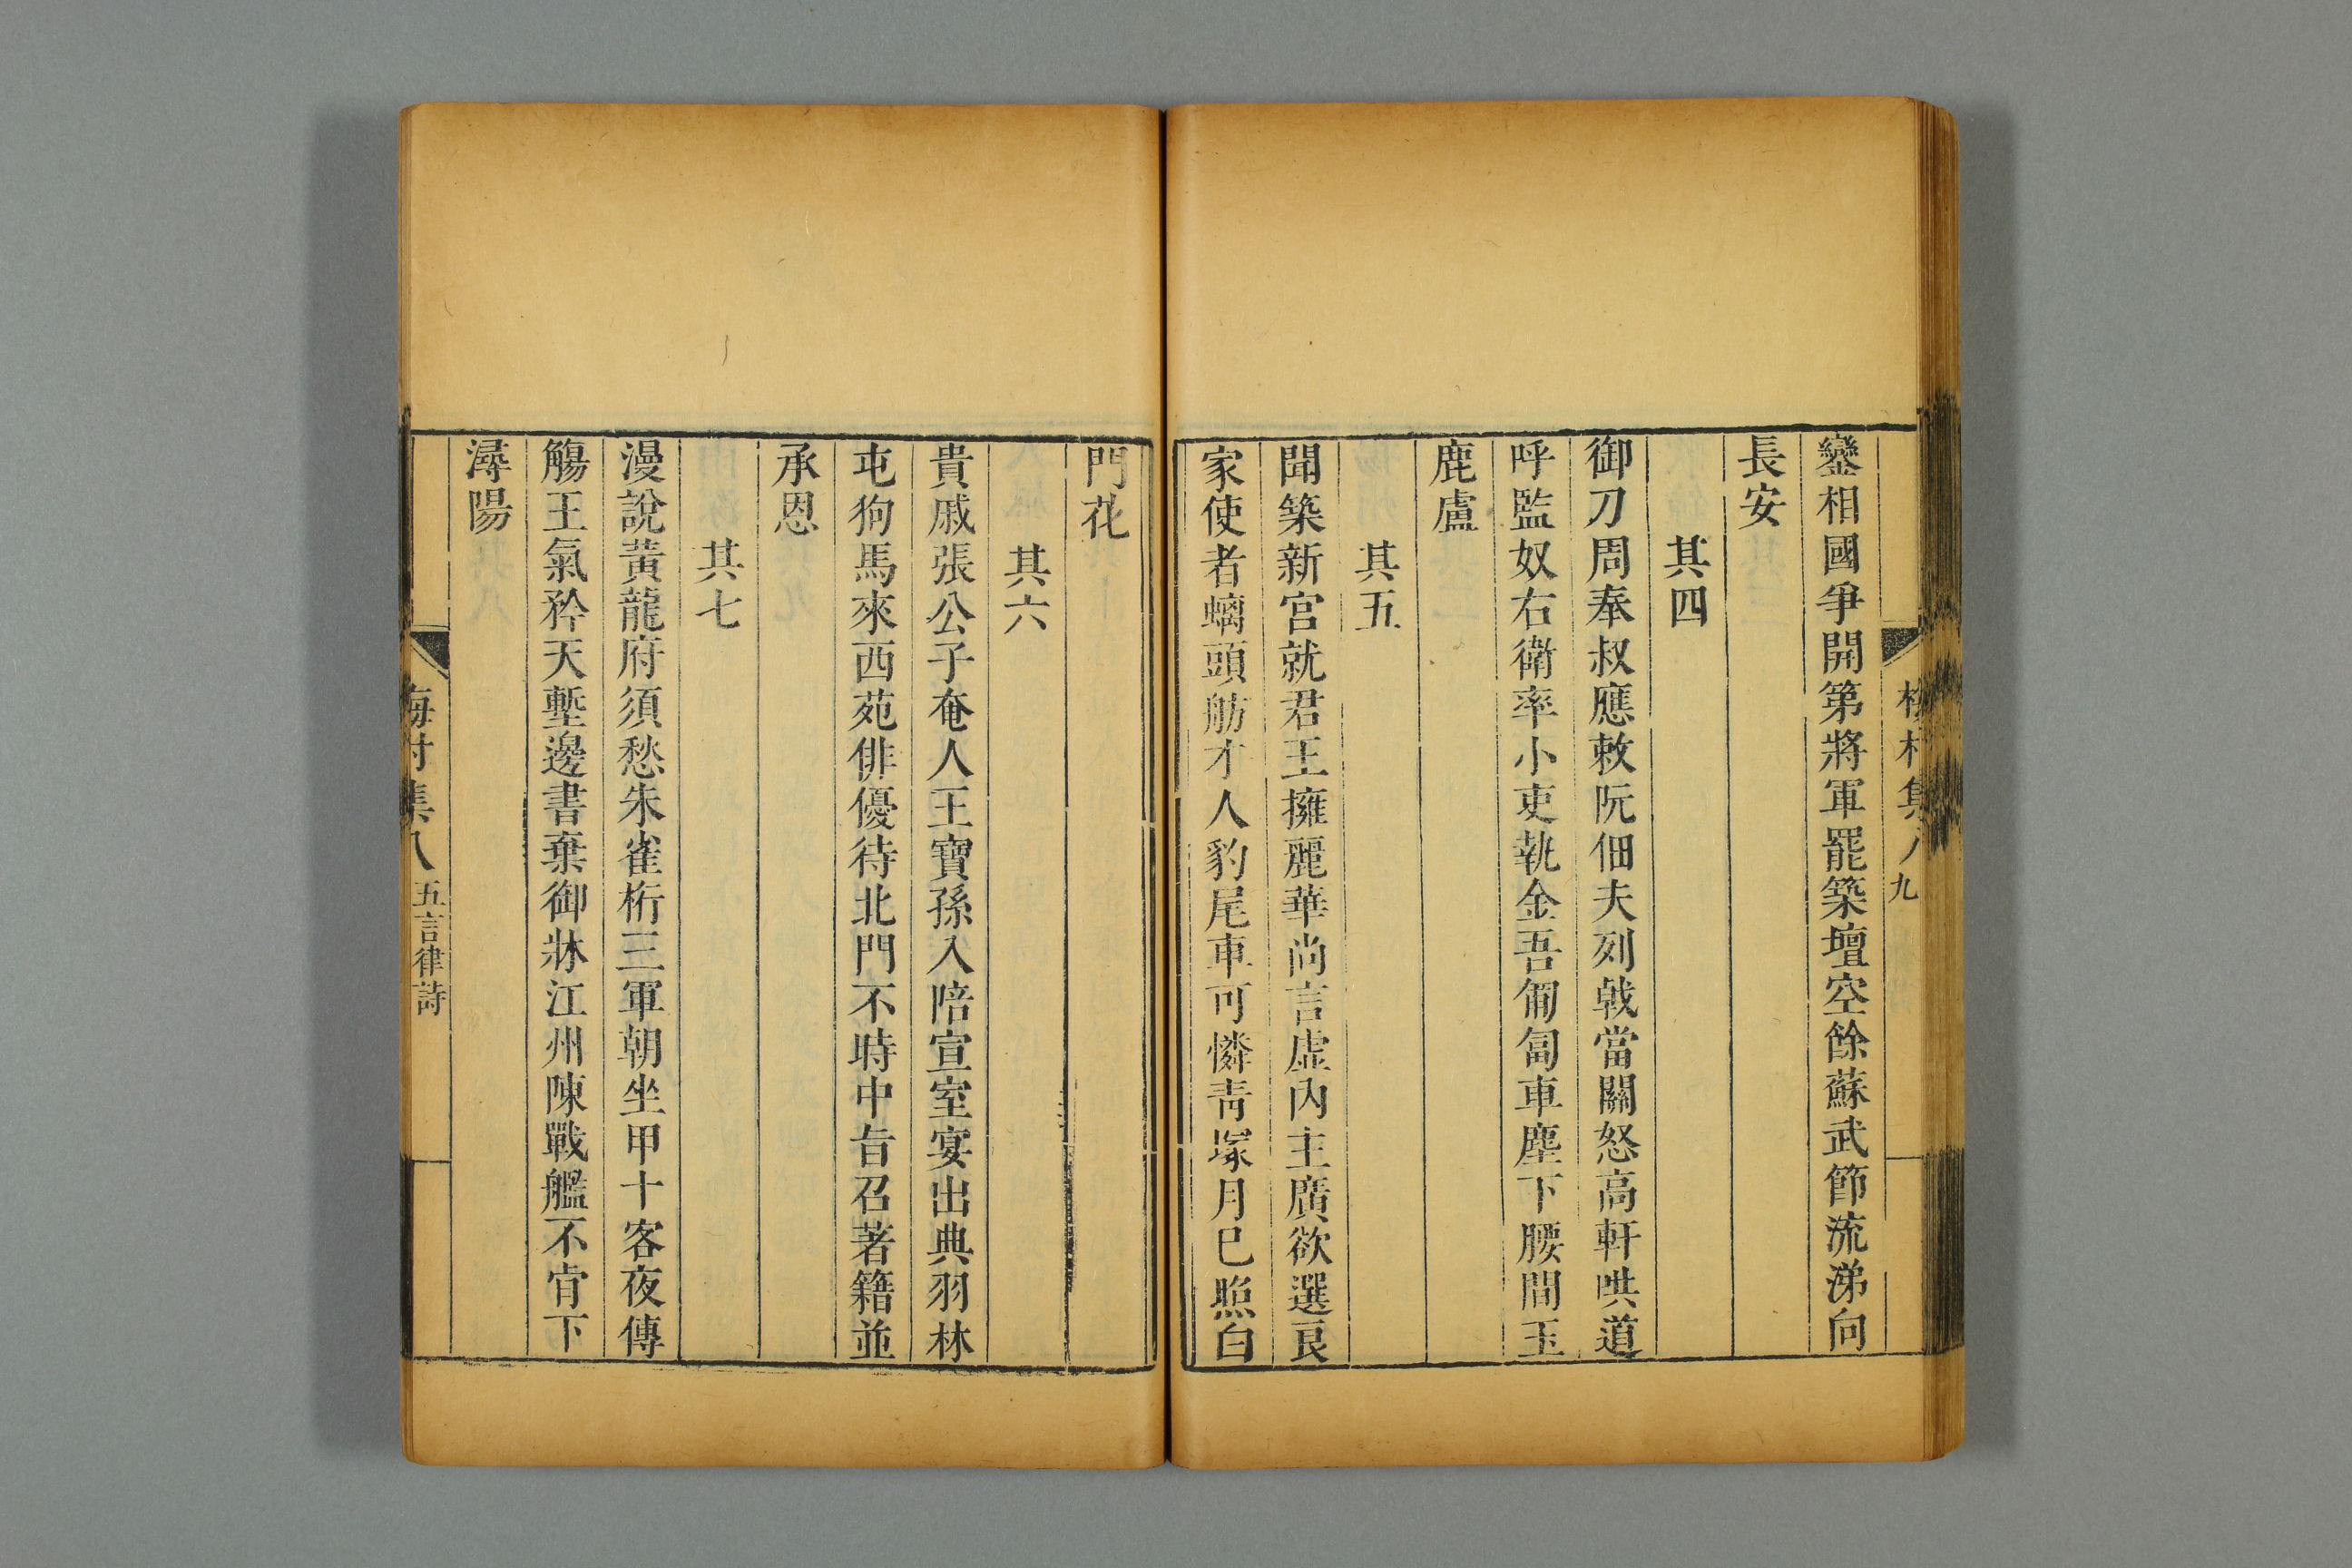 梅村集八 九
鑾相國爭開第將軍罷築壇空餘蘇武節流涕向
長安
其四
御刀周奉叔應敕阮佃夫列戟當關怒高軒哄道
呼監奴右衛率小吏執金吾匍匐車塵下腰間玉
鹿盧
其五
聞築新宮就君王擁麗華尚言虛內主廣欲選良
家使者螭頭舫才人豹尾車可憐青塚月已照白
門花
其六
貴戚張公子奄人王寶孫入陪宣室宴出典羽林
屯狗馬來西苑俳優待北門不時中旨召著籍並
承恩
其七
漫說黃龍府須愁朱雀桁三軍朝坐甲十客夜傳
觴王氣矜天塹邊書棄御牀江州陳戰艦不肯下
潯陽
梅村集八 五言律詩